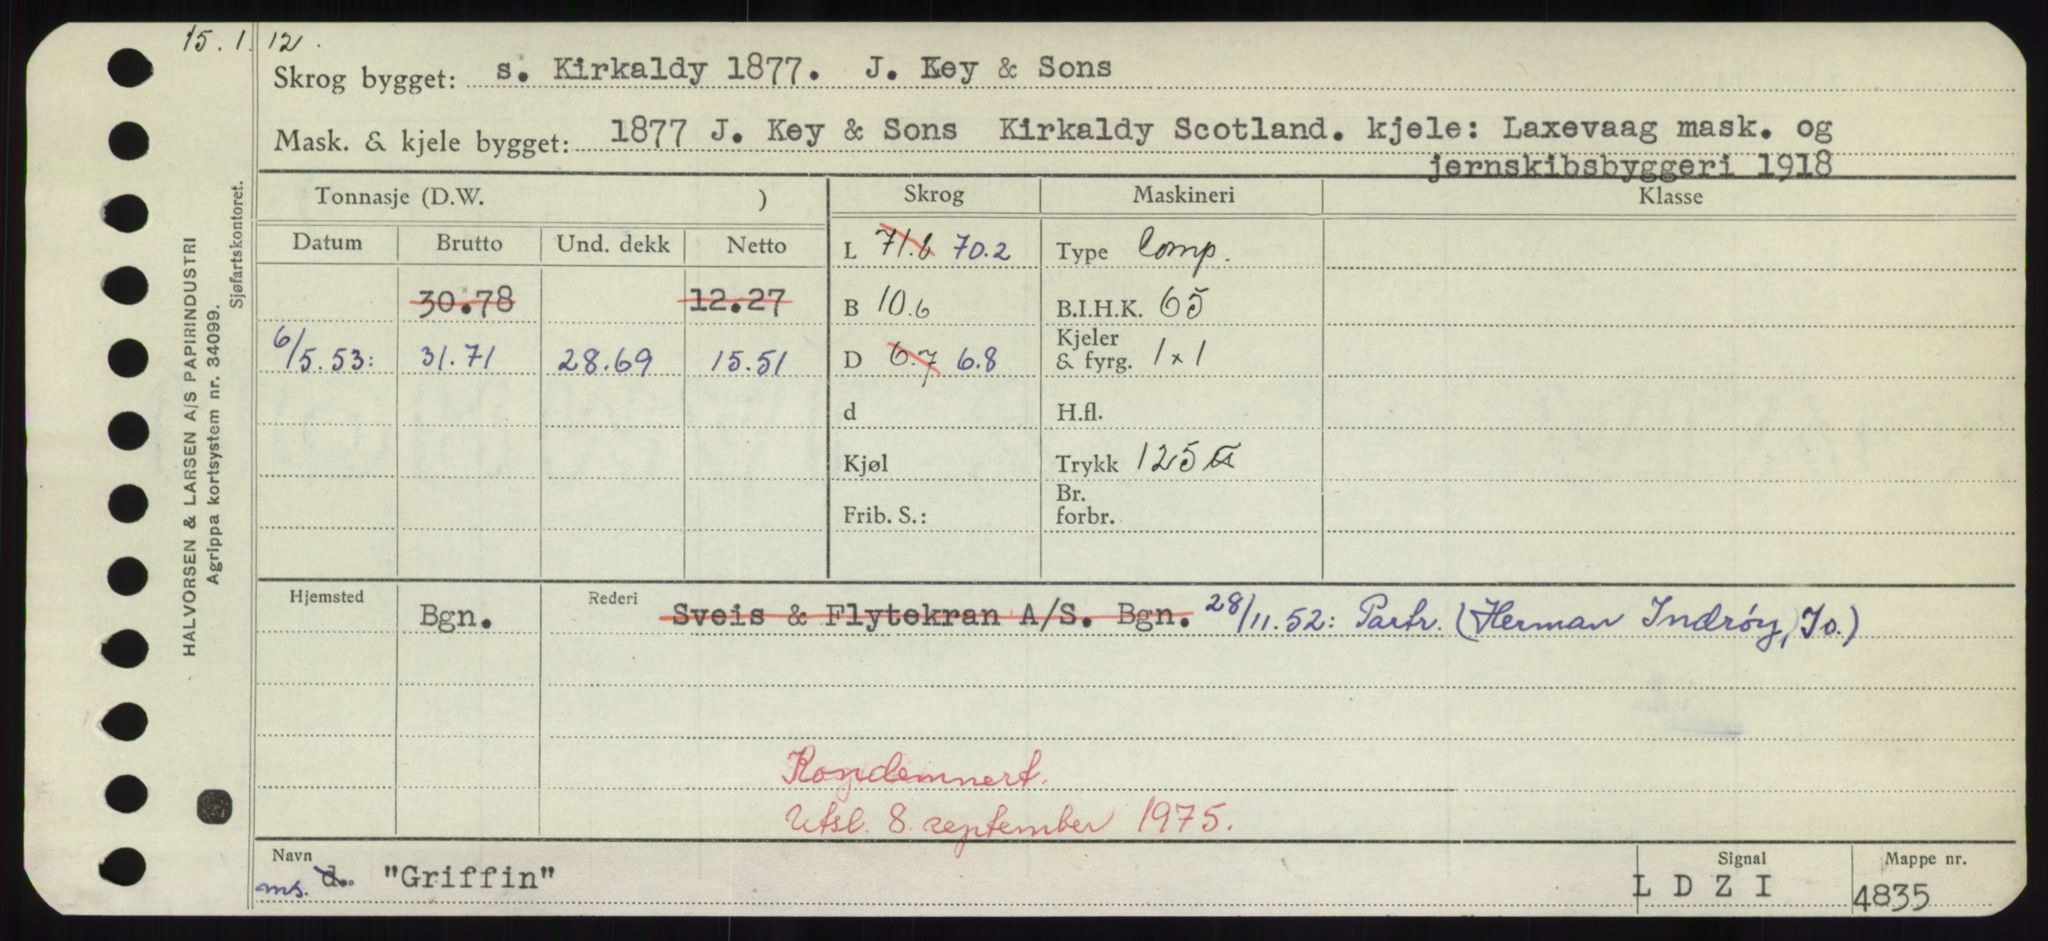 15. 1. 12.
Skrog bygget: s. Kirkaldy 1877. J. Key & Sons
Mask. & kjele bygget: 1877 J. Key & Sons Kirkaldy Scotland. kjele: Laxevaag mask. og
jernskibsbyggeri 1918
Tonnasje (D.W. ) Skrog Maskineri Klasse
Datum Brutto Und. dekk Netto L 71.6 70.2 Type Comp.
30.78 12.27 B 10.6 B.I.H.K. 65
6/5.53: 31.71 28.69 15.51 D 6.7 6.8 Kjeler & fyrg. 1 x 1
d H.fl.
Kjøl Trykk 125
Frib. S.: Br. forbr.
Hjemsted Bgn. Rederi Sveis & Flytekran A/S. Bgn. 28/11.52: Partr. (Herman Indrøy, Io.)
Kondemnert.
Utsl. 8. september 1975.
Navn Signal Mappe nr.
ms. d. "Griffin" L D Z I 4835
HALVORSEN & LARSEN A/S PAPIRINDUSTRI
Agrippa kortsystem nr. 34099.
Sjøfartskontoret.